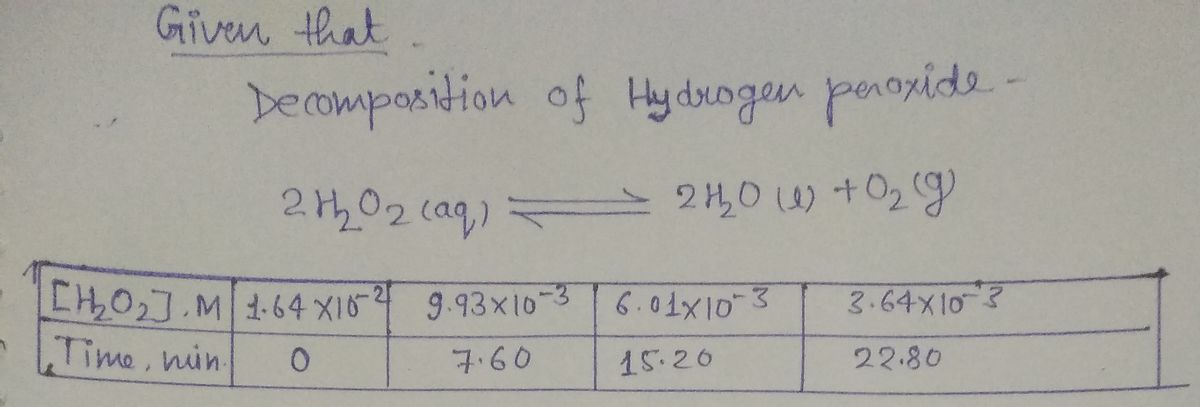 Given that
Decomposition of Hydrogen peroxide -
2H₂O₂(aq) ⇌ 2H₂O(l) + O₂(g)
[H₂O₂].M 1.64×10⁻² 9.93×10⁻³ 6.01×10⁻³ 3.64×10⁻³
Time, min. 0 7.60 15.20 22.80